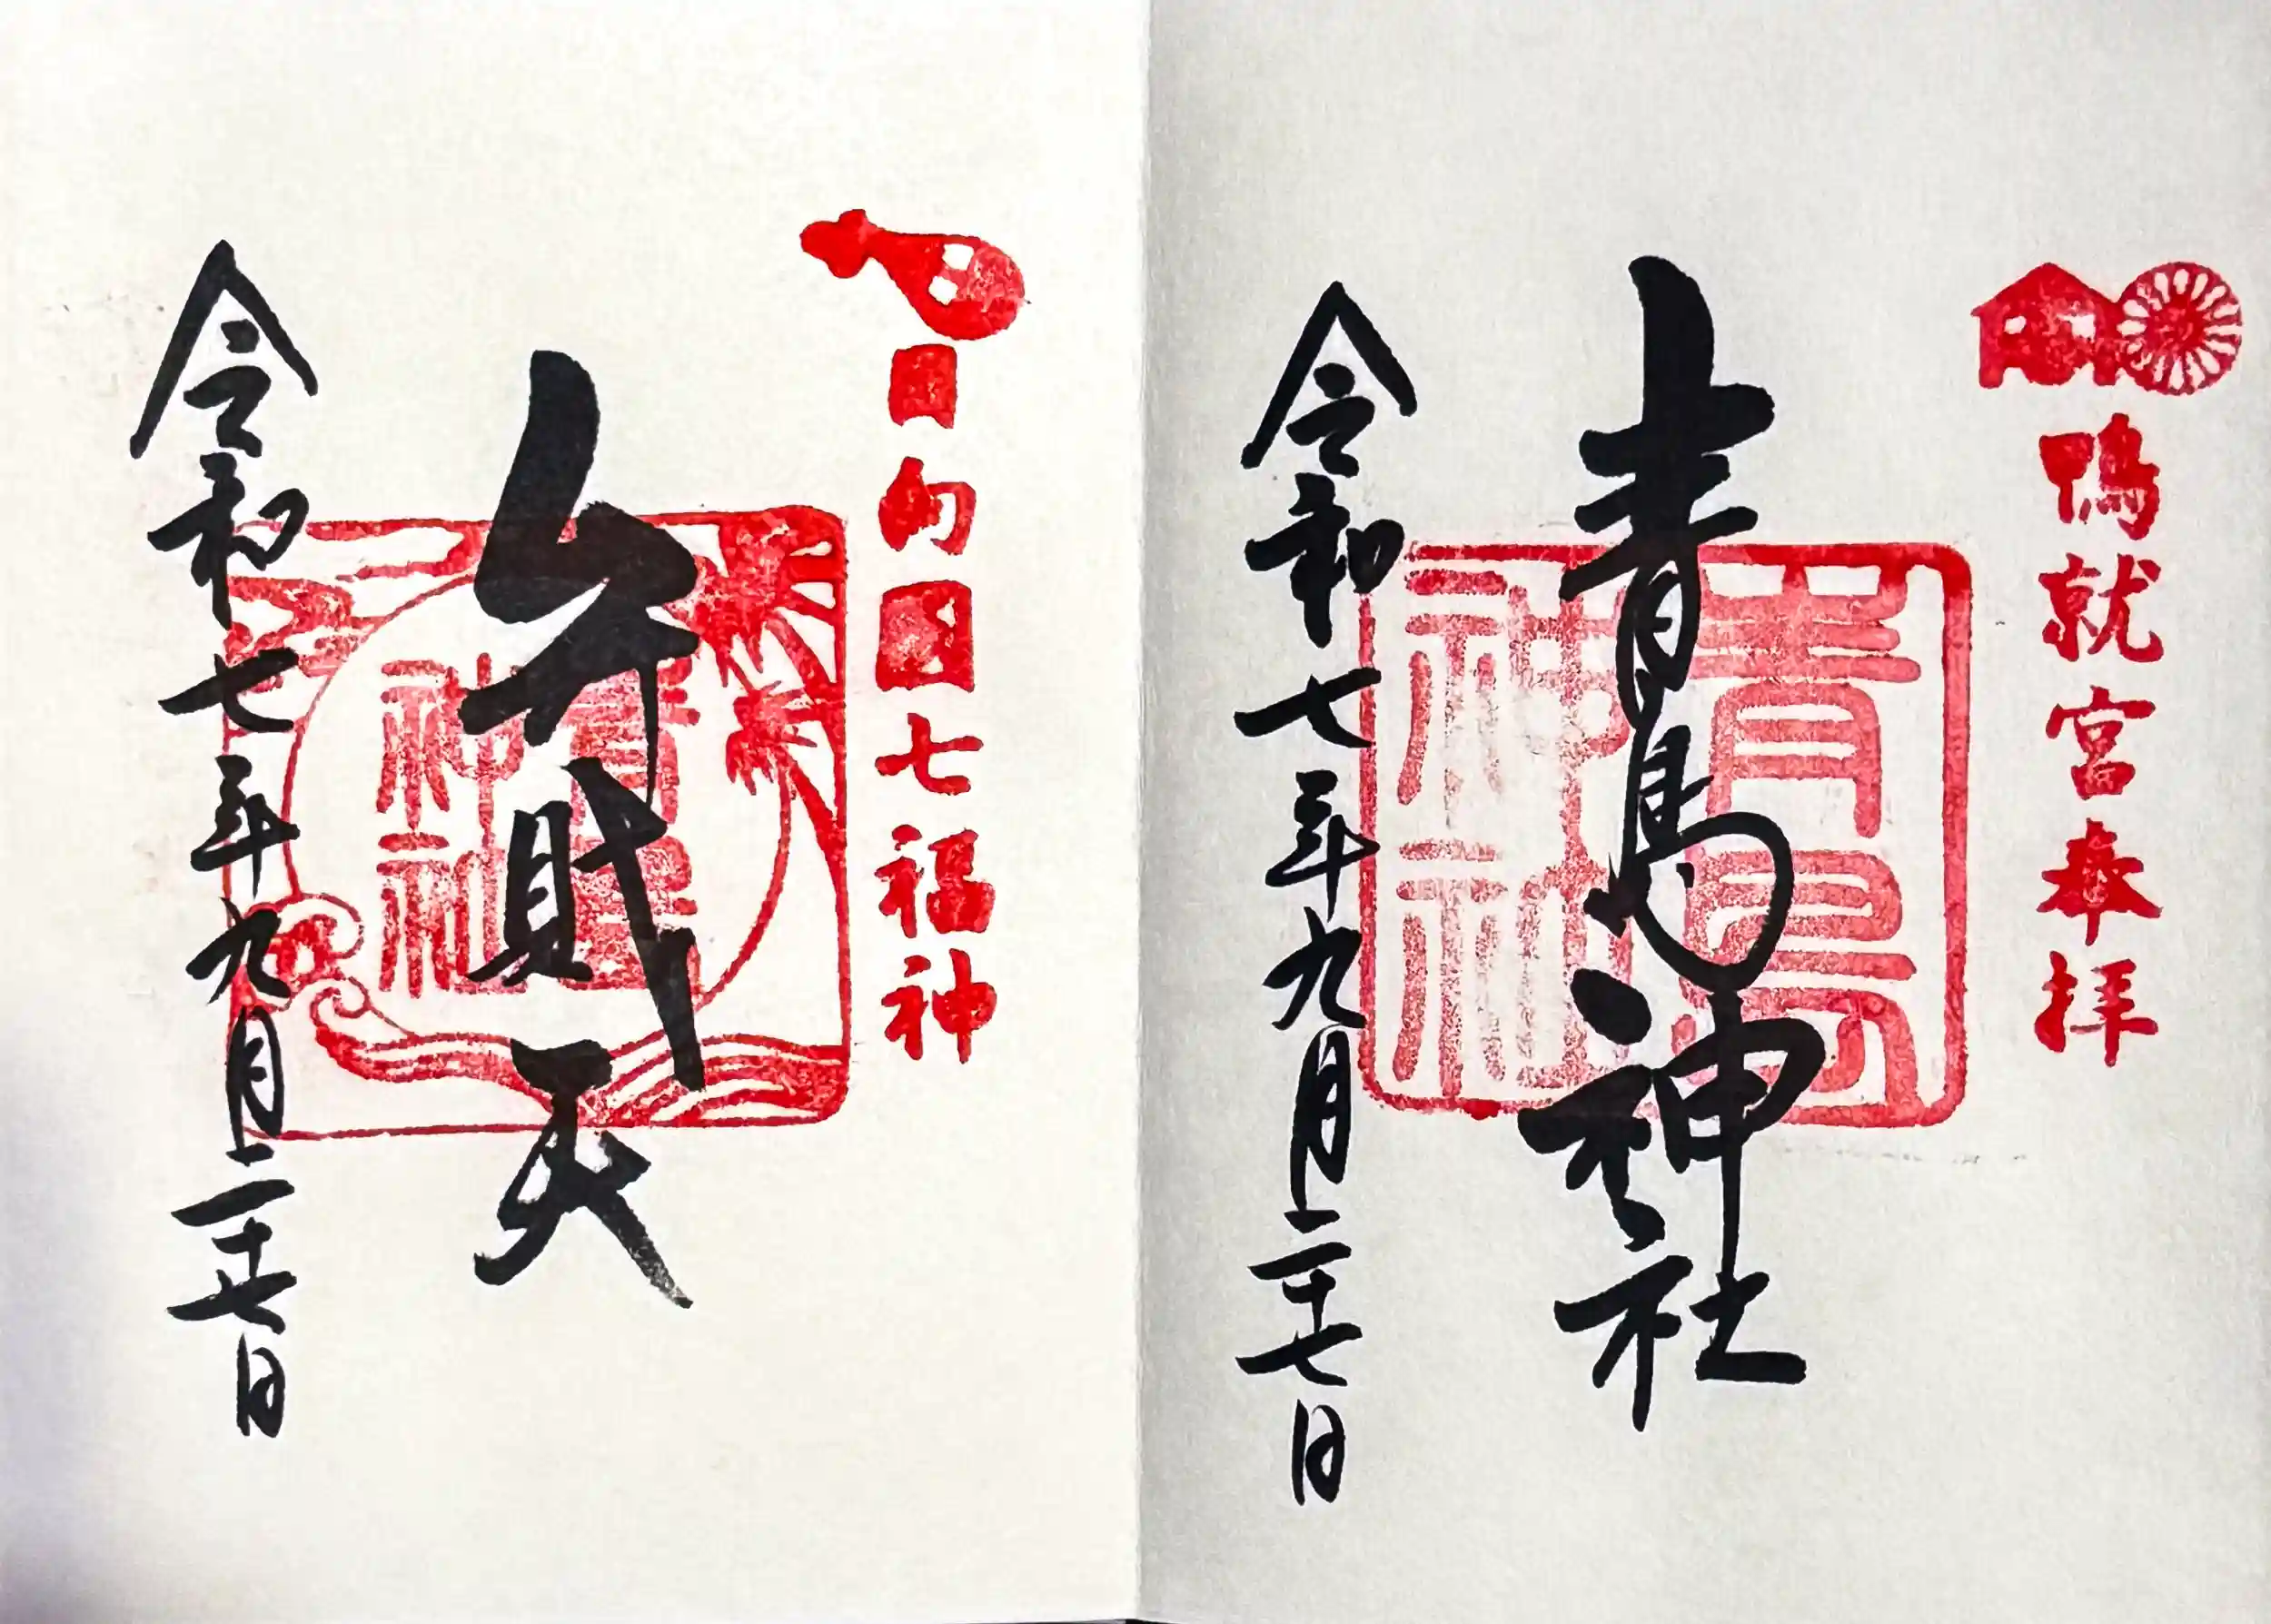 鴨就宮奉拝
青島神社
青島
神社
令和七年九月二十七日
日向国七福神
弁財天
青島
神社
令和七年九月二十七日